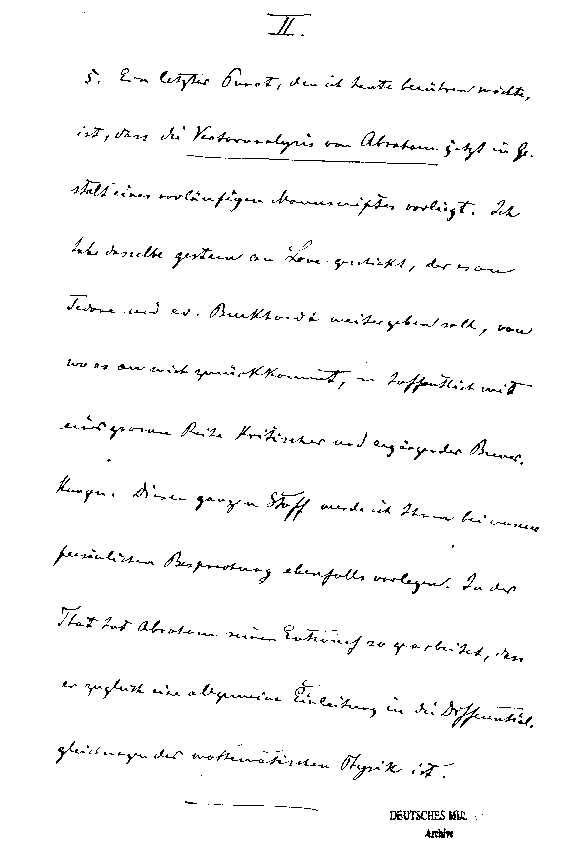 II.
5. Ein letzter Punct, den ich heute berühren möchte,
ist, dass die Vectoranalysis von Abraham jetzt in Ge-
stalt eines vorläufigen Manuscriptes vorliegt. Ich
habe dasselbe gestern an Love geschickt, der es an
Tedone und ev. Burkhardt weitergeben soll, von
wo es an mich zurückkommt, hoffentlich mit
einer grossen Reihe kritischer und ergänzender Bemer-
kungen. Diesen ganzen Stoff werde ich Ihnen bei unserer
persönlichen Besprechung ebenfalls vorlegen. In der
That hat Abraham seinen Entwurf so gearbeitet, dass
er zugleich eine allgemeine Einleitung in die Differential-
gleichungen der mathematischen Physik ist.
DEUTSCHES MU
Archive